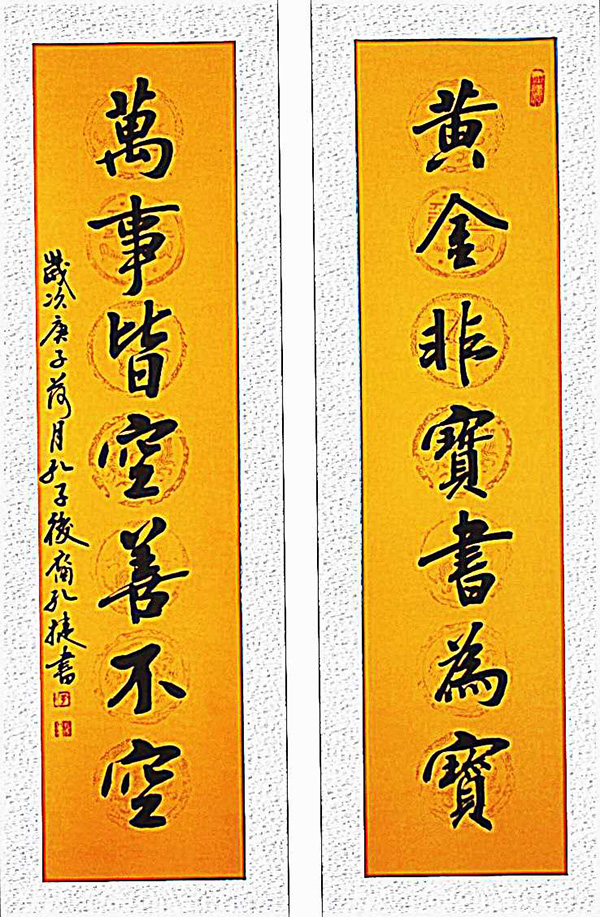 黄金非寳書為寳
萬事皆空善不空
歲次庚子荷月孔子後裔孔捷書